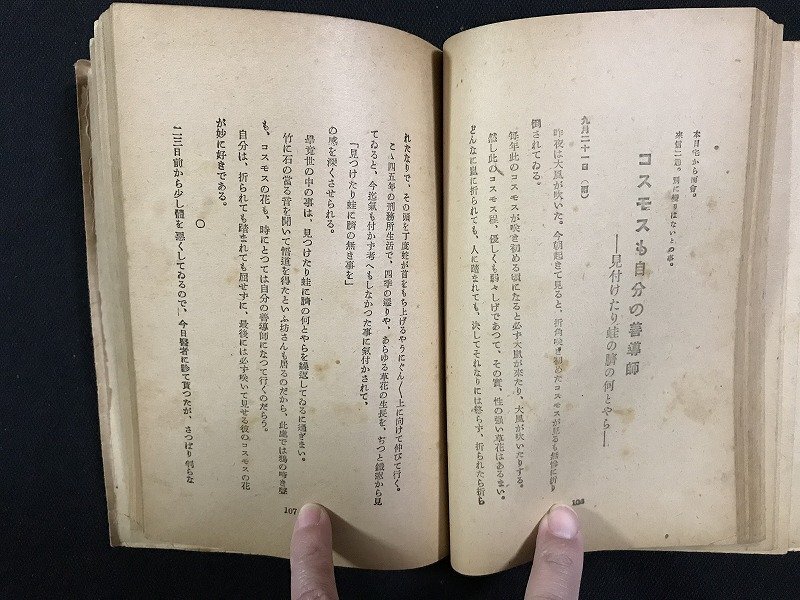 本日宅から面會。
來信二通。別に變りはないとの事。
コスモスも自分の善導師
――見付けたり蛙の臍の何とやら――
九月二十一日（雨）
昨夜は大風が吹いた。今朝起きて見ると、折角咲き初めたコスモスが皆な無慘に折り
倒されてゐる。
毎年此のコスモスが咲き初める頃になると必ず大風が來たり、大風が吹いたりする。
然し此のコスモス程、優しくも弱々しげであつて、その實、性の强い草花はあるまい。
どんなに風に折られても、人に踏まれても、決してそれなりには終らず、折られたら折ら
106
れたなりで、その頭を丁度蛇が首をもち上げるやうにぐん〳〵上に向けて伸びて行く。
こゝ四五年の刑務所生活で、四季の遷りや、あらゆる草花の生長を、ぢつと鐵窓から見
てゐると、今迄氣も付かず考へもしなかつた事に氣付かされて、
「見つけたり蛙に臍の無き事を」
の感を深くさせられる。
畢竟世の中の事は、見つけたり蛙に臍の何とやらを繰返してゐるに過ぎまい。
竹に石の當る音を聞いて悟道を得たといふ坊さんも居るのだから、此處では鴉の啼き聲
も、コスモスの花も、時にとつては自分の善導師になつて行くのだらう。
自分は、折られても踏まれても屈せずに、最後には必ず咲いて見せる彼のコスモスの花
が妙に好きである。
○
二三日前から少し體を惡くしてゐるので、今日醫者に診て貰つたが、さつぱり判らな
107